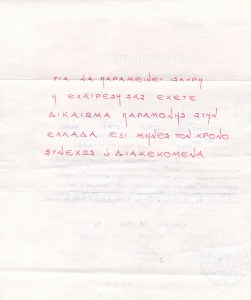 ΓΙΑ ΝΑ ΠΑΡΑΜΕΙΝΕΙ ΙΣΧΥΡΗ
Η ΕΞΑΙΡΕΣΗ ΣΑΣ ΕΧΕΤΕ
ΔΙΚΑΙΩΜΑ ΠΑΡΑΜΟΝΗΣ ΣΤΗΝ
ΕΛΛΑΔΑ ΕΞΙ ΜΗΝΕΣ ΤΟΝ ΧΡΟΝΟ
ΣΥΝΕΧΩΣ ή ΔΙΑΚΕΚΟΜΕΝΑ